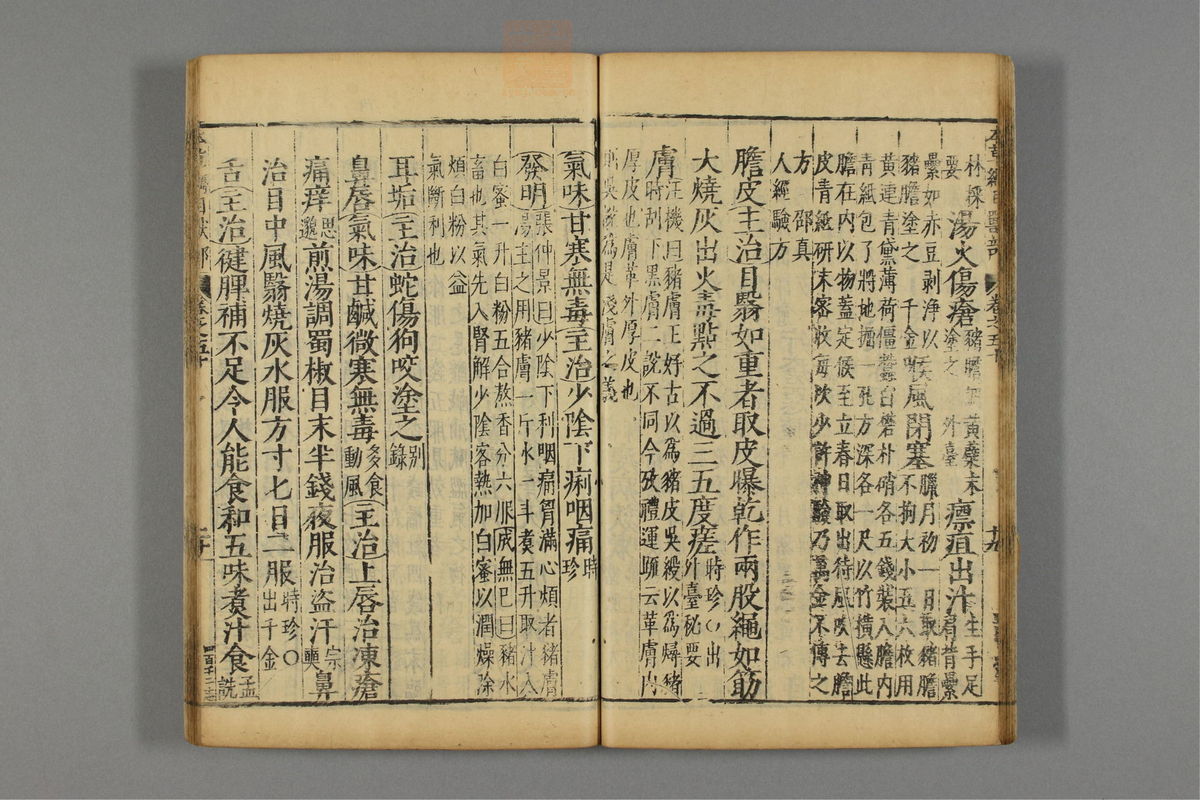 林採
要 湯火傷瘡 豬膽 黃蘗末
塗之 外臺 瘭疽出汁 生手足
肩背纍
纍如赤豆剥淨以
豬膽塗之 千金 喉風閉塞 臘月初一日取豬膽
不拘大小五六枚用
黃連青黛薄荷僵蠶白礬朴硝各五錢裝入膽內
青紙包了將地掘一孔方深各一尺以竹橫懸此
膽在內以物蓋定候至立春日取出待風吹去膽
皮青紙研末密收每吹少許神驗乃萬金不傳之
方 邵真
人經驗方
膽皮主治目翳如重者取皮曝乾作兩股繩如筯
大燒灰出火毒點之不過三五度瘥 時珍〇出
外臺秘要
膚 汪機曰豬膚王好古以爲豬皮吳綬以爲燖豬
時刮下黑膚二說不同今攷禮運疏云革膚內
厚皮也膚革外厚皮也
則吳說爲是淺膚之義
氣味甘寒無毒主治少陰下痢咽痛 時
珍
發明 張仲景曰少陰下利咽痛胷滿心煩者豬膚
湯主之用豬膚一斤水一斗煮五升取汁入
白蜜一升白粉五合熬香分六服成無已曰豬水
畜也其氣先入腎解少陰客熱加白蜜以潤燥除
煩白粉以益
氣斷利也
耳垢主治蛇傷狗咬塗之 別
錄
鼻唇氣味甘鹹微寒無毒 多食
動風 主治上唇治凍瘡
痛痒 思
邈 煎湯調蜀椒目末半錢夜服治盜汗 宗
奭 鼻
治目中風翳燒灰水服方寸匕日二服 時珍〇
出千金
舌主治健脾補不足令人能食和五味煮汁食 孟
詵